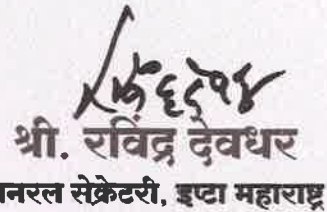 श्री. रविंद्र देवधर
नरल सेक्रेटरी, इप्टा महाराष्ट्र